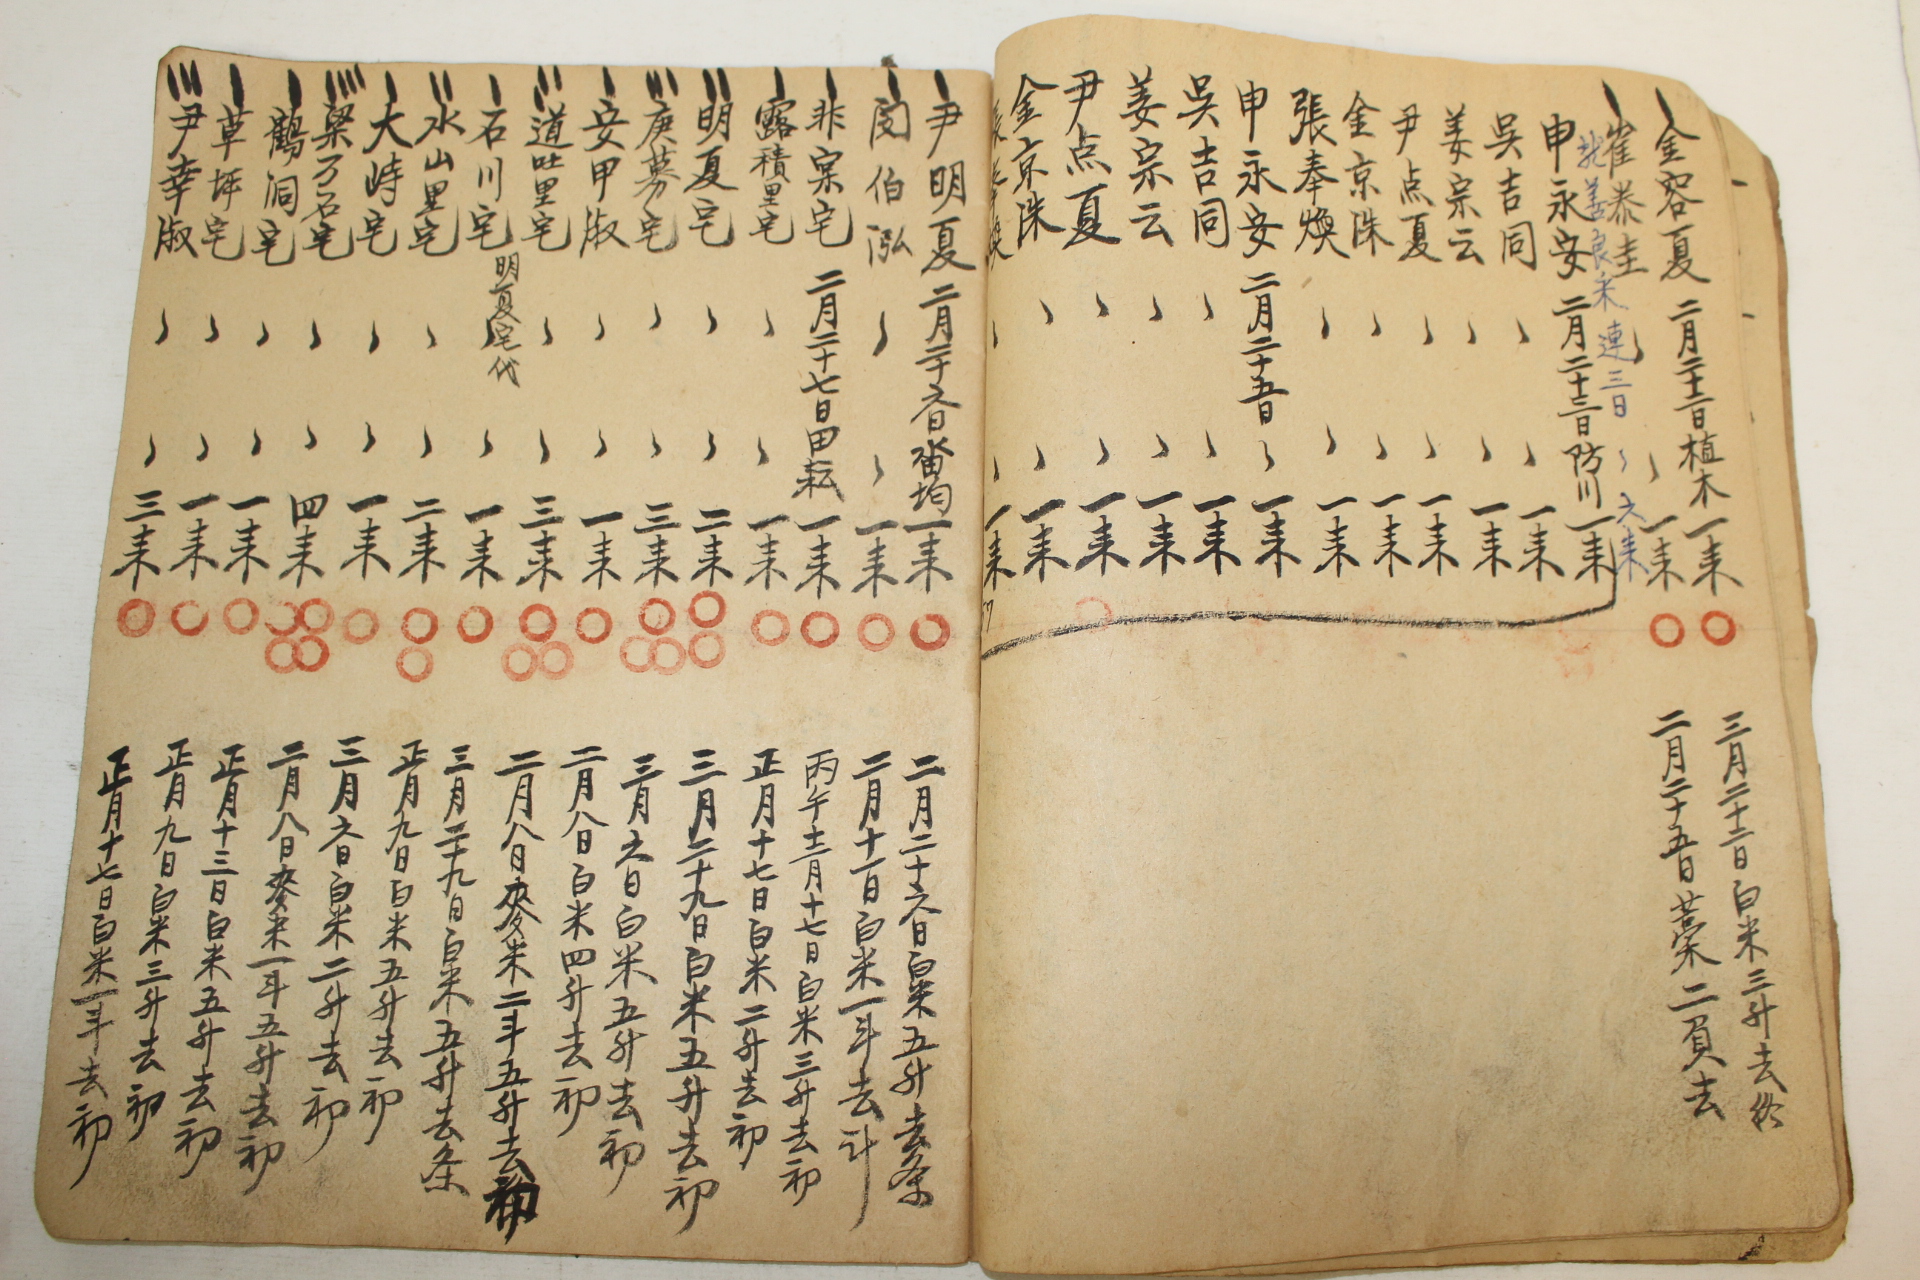 金容夏 二月二十二日植木 一耒
崔泰圭 一耒
良米 連三日 六耒
申永安 二月二十三日防川 一耒
吳吉同 一耒
姜宗云 一耒
尹点夏 一耒
金京洙 一耒
張奉煥 一耒
申永安 二月二十五日 一耒
吳吉同 一耒
姜宗云 一耒
尹点夏 一耒
金京洙 一耒
張奉煥 一耒
三月二十二日白米三升去
二月二十五日藁二負去
尹明夏 二月二十六日畓均 一耒
閔伯泓 一耒
非宗宅 二月二十七日田耘 一耒
露積里宅 一耒
明夏宅 二耒
庚募宅 三耒
安甲淑 一耒
道吐里宅 三耒
石川宅 明夏宅代 一耒
水山里宅 二耒
大峙宅 一耒
梁万石宅 四耒
鶴洞宅 一耒
草坪宅 一耒
尹幸淑 三耒
二月二十六日白米五升去条
二月十一日白米一斗去計
丙午十二月十七日白米三升去初
正月十七日白米二升去初
三月二十九日白米五升去初
三月六日白米五升去初
二月八日白米四升去初
二月八日麥米二斗五升去初
三月二十九日白米五升去条
正月九日白米五升去初
三月六日白米二升去初
二月八日麥米一斗五升去初
正月十三日白米五升去初
正月九日白米三升去初
正月十七日白米一斗去初